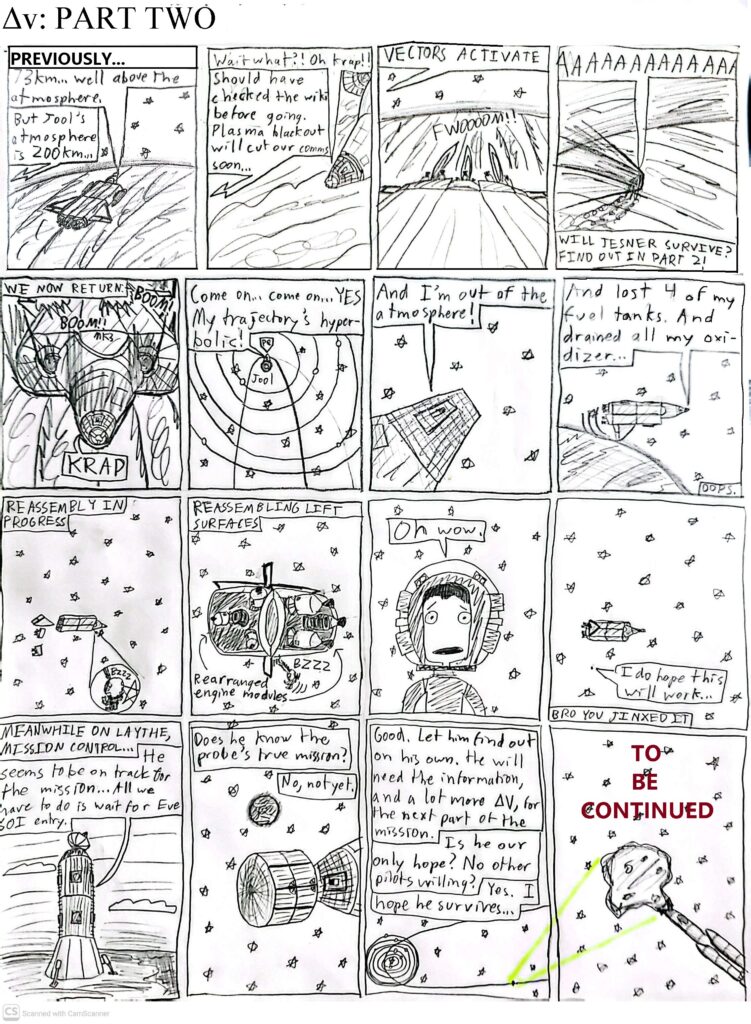 Δv: PART TWO
PREVIOUSLY...
73km... well above the
atmosphere.
But Jool's
atmosphere
is 200km...
Wait what?! Oh krap!!
Should have
checked the wiki
before going.
Plasma blackout
will cut our comms
soon...
VECTORS ACTIVATE
FWOOOOM!!
AAAAAAAAAAAAA
WILL JESNER SURVIVE?
FIND OUT IN PART 2!
WE NOW RETURN:
BOOM!!
BOOM!!
MK3
KRAP
Come on... come on... YES
My trajectory's hyper-
bolic!
Pe
Jool
And I'm out of the
atmosphere!
And lost 4 of my
fuel tanks. And
drained all my oxi-
dizer...
OOPS.
REASSEMBLY IN
PROGRESS
BZZZ
REASSEMBLING LIFT
SURFACES
BZZZ
Rearranged
engine modules
Oh wow.
I do hope this
will work...
BRO YOU JINXED IT
MEANWHILE ON LAYTHE,
MISSION CONTROL...
He
seems to be on track for
the mission... All we
have to do is wait for Eve
SOI entry.
Does he know the
probe's true mission?
No, not yet.
Good. Let him find out
on his own. He will
need the information,
and a lot more ΔV, for
the next part of the
mission.
Is he our
only hope? No other
pilots willing?
Yes. I
hope he survives...
TO
BE
CONTINUED
CS Scanned with CamScanner